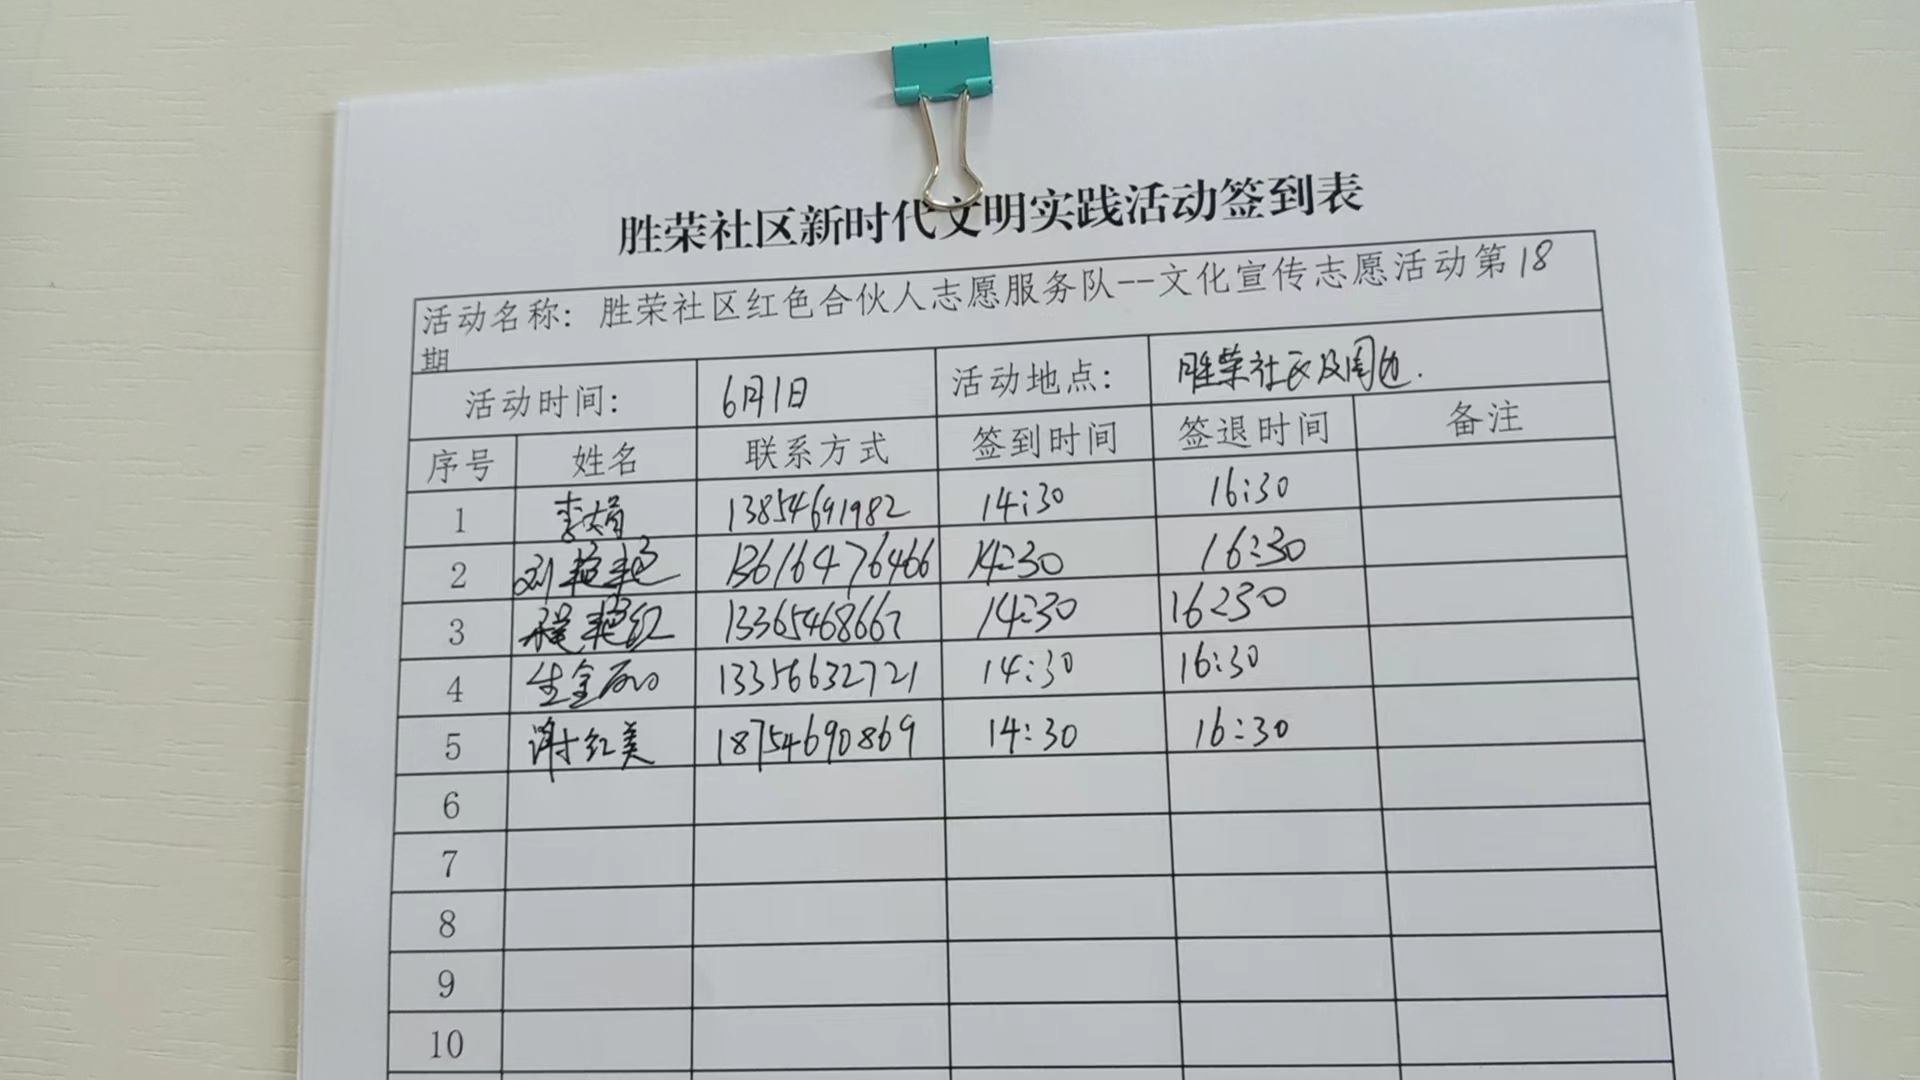 胜荣社区新时代文明实践活动签到表
活动名称：胜荣社区红色合伙人志愿服务队--文化宣传志愿活动第18
期
活动时间： 6月1日 活动地点： 胜荣社区及周边.
序号 姓名 联系方式 签到时间 签退时间 备注
1 李娟 13854691982 14:30 16:30
2 刘艳艳 13616476466 14:30 16:30
3 程艳红 13365468667 14:30 16:30
4 生金 13356632721 14:30 16:30
5 谢红美 18754690869 14:30 16:30
6
7
8
9
10